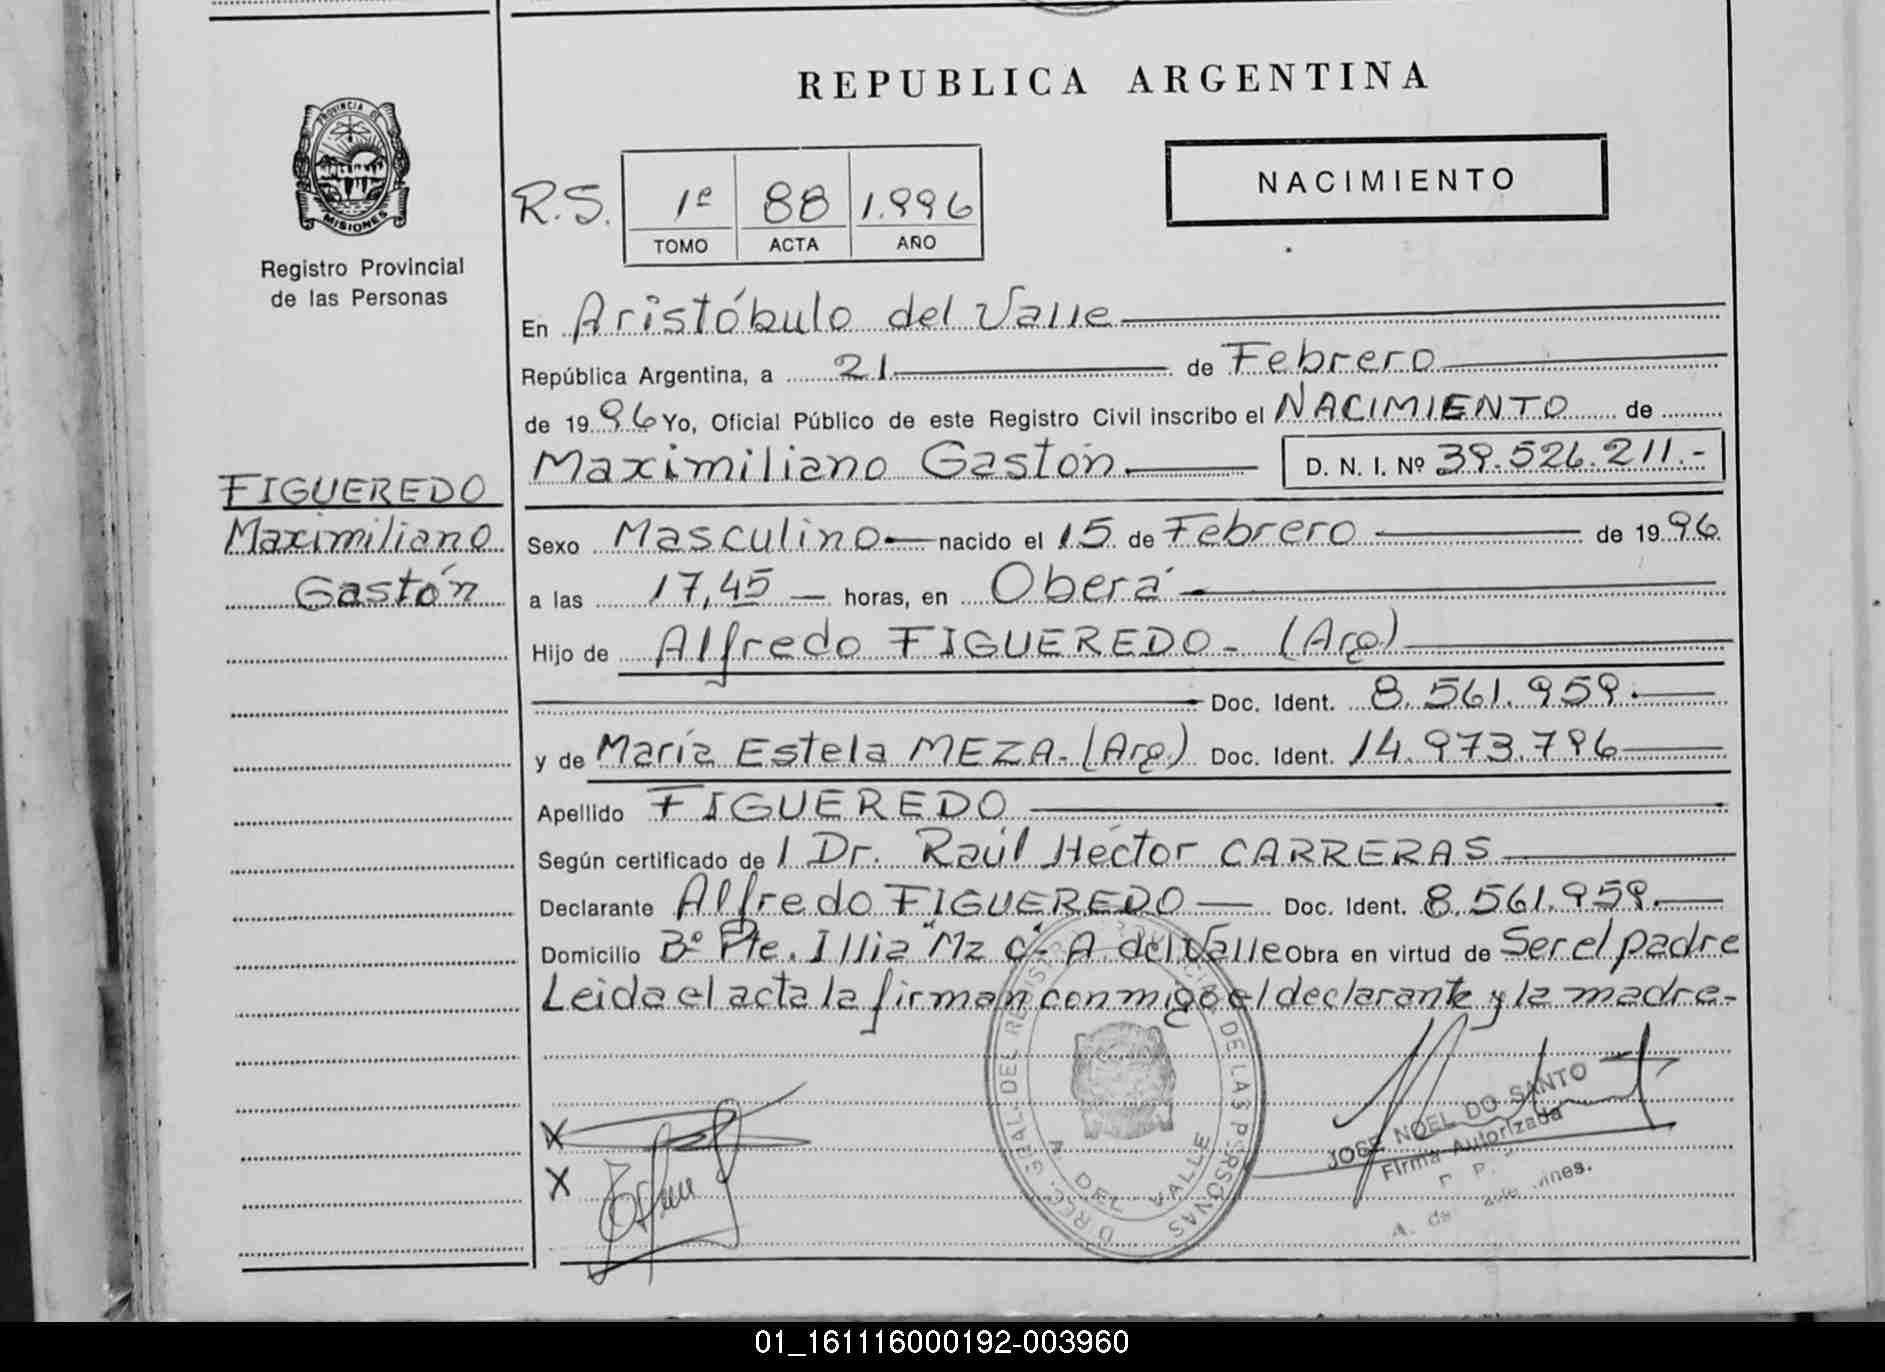 REPUBLICA ARGENTINA
PROVINCIA DE MISIONES
NACIMIENTO
R.S. 1º 88 1.996
TOMO ACTA AÑO
Registro Provincial
de las Personas
En Aristóbulo del Valle
República Argentina, a 21 de Febrero
de 1996 Yo, Oficial Público de este Registro Civil inscribo el NACIMIENTO de
Maximiliano Gastón D. N. I. Nº 39.526.211.-
FIGUEREDO
Maximiliano
Gastón
Sexo Masculino nacido el 15 de Febrero de 1996
a las 17,45 horas, en Oberá
Hijo de Alfredo FIGUEREDO - (Arg)
Doc. Ident. 8.561.959.
y de María Estela MEZA. (Arg) Doc. Ident. 14.973.796
Apellido FIGUEREDO
Según certificado de l Dr. Raúl Héctor CARRERAS
Declarante Alfredo FIGUEREDO Doc. Ident. 8.561.959.
Domicilio Bº Pte. Illia "Mz C"- A. del Valle Obra en virtud de Ser el padre
Leida el acta la firman conmigo el declarante y la madre.-
X
X
DEL REGISTRO PROVINCIAL DE LAS PERSONAS
A DEL VALLE
JOSE NOEL DO SANTO
Firma Autorizada
01_161116000192-003960